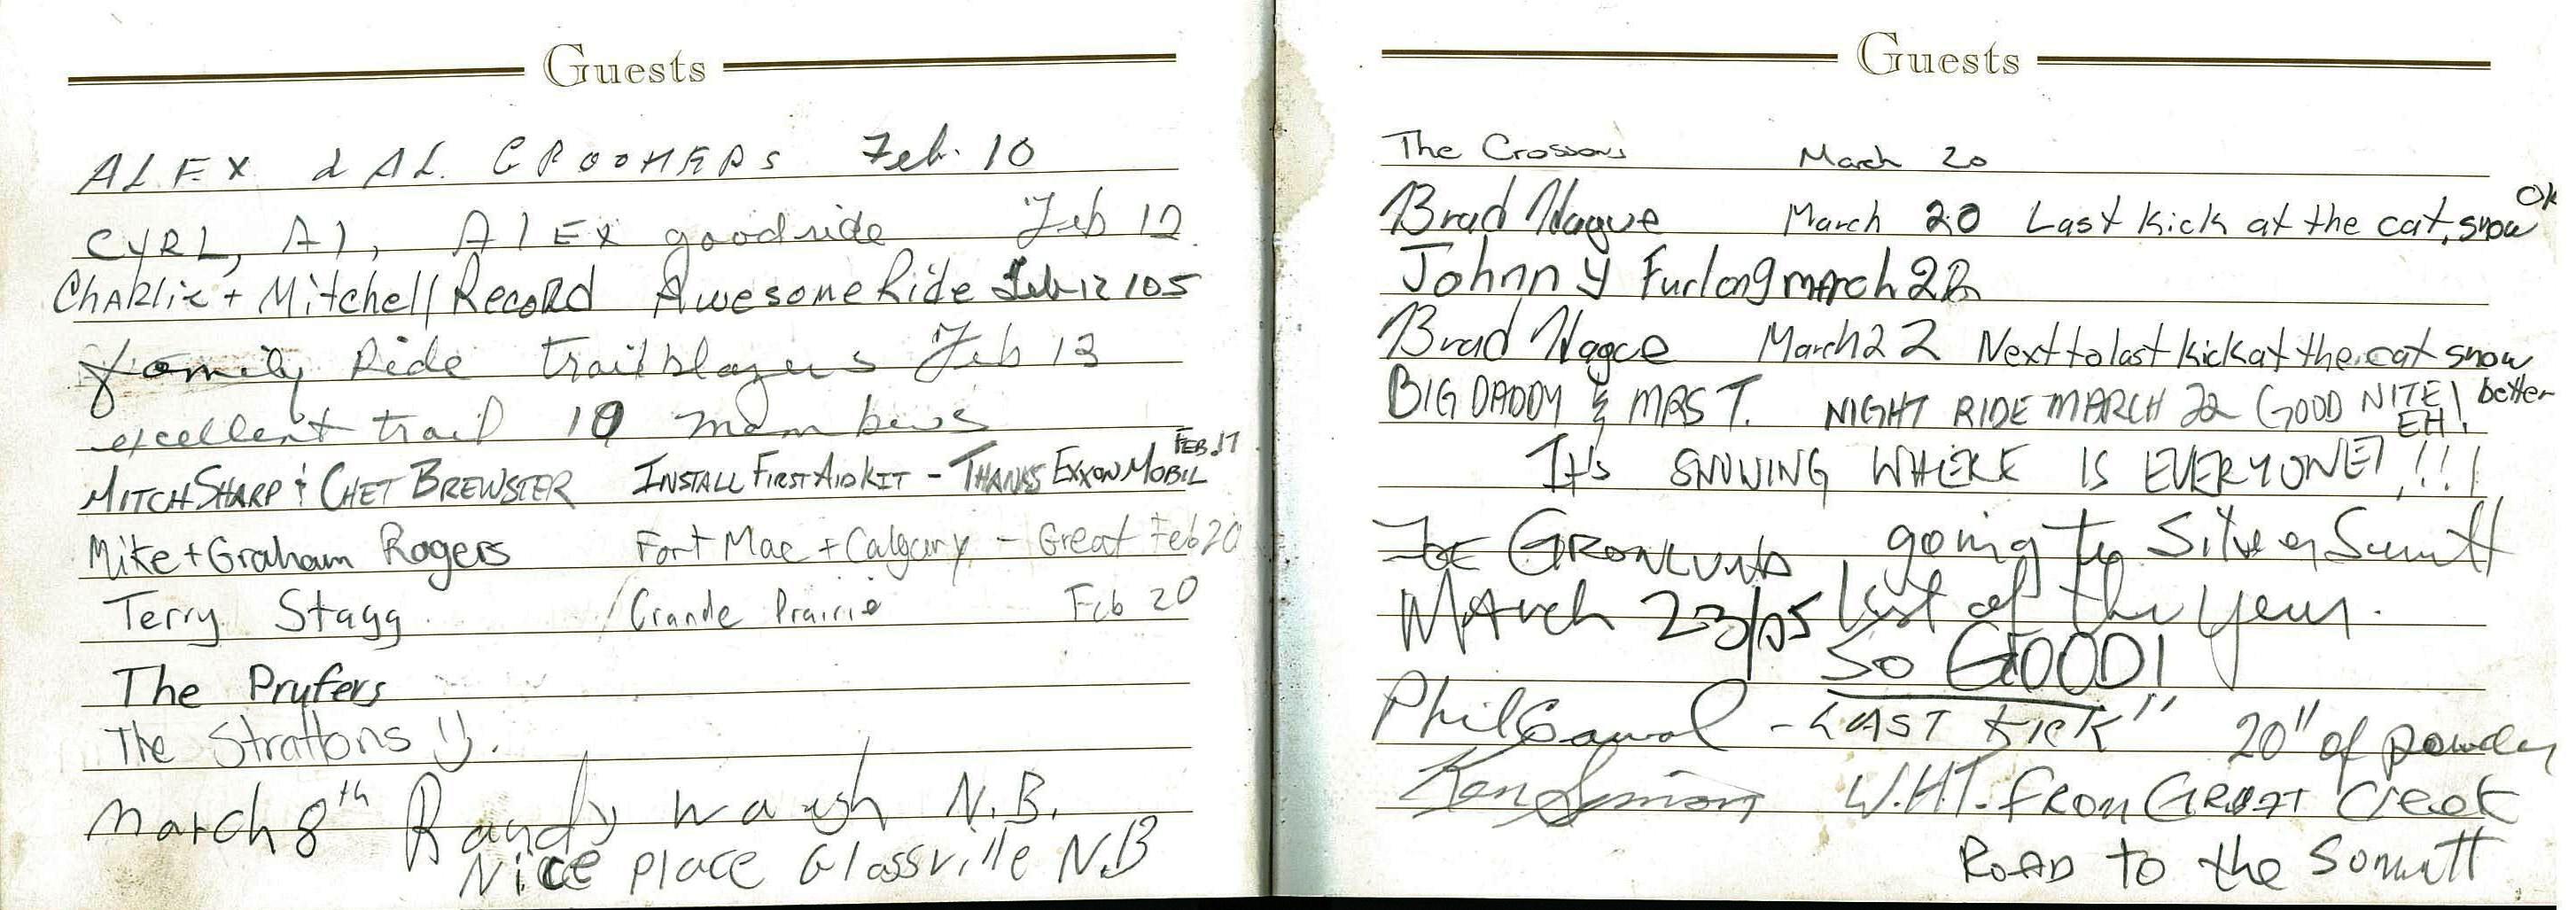 Guests
ALEX & AL. GROOMERS Feb. 10
CYRL, Al, AlEx good ride Feb 12
Charlie + Mitchell Record Awesome Ride Feb 12/05
family Ride trailblazers Feb 13
excellent trail 10 members
MITCH SHARP & CHET BREWSTER INSTALL FIRST AID KIT - THANKS EXXON MOBIL FEB. 17
Mike + Graham Rogers Fort Mac + Calgary - Great Feb 20
Terry Stagg Grande Prairie Feb 20
The Prufers
The Strattons :).
March 8th Randy waugh N.B.
Nice place Glassville N.B
Guests
The Crossons March 20
Brad Hague March 20 Last kick at the cat, snow OK
Johnny Furlong march 22
Brad Hague March 22 Next to last kick at the cat snow better
BIG DADDY & MRS T. NIGHT RIDE MARCH 22 GOOD NITE! EH!
It's SNOWING WHERE IS EVERYONE?!!!
GRONLUND going to Silver Sumitt
MArch 23/05 last of the year.
So GOOD!
Phil - LAST KICK" 20" of powder
Ken W.H.T. from Groat Creek
ROAD to the Somitt